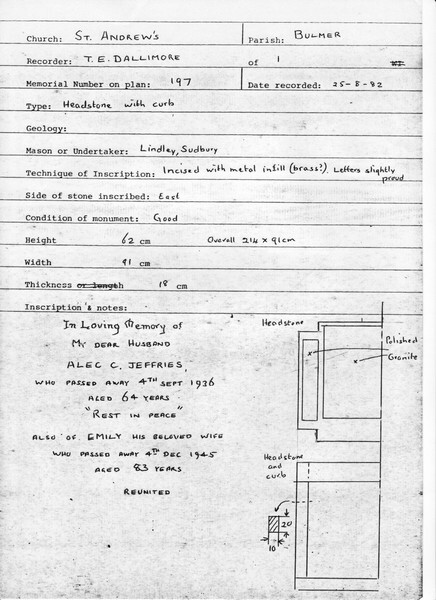 Church: ST. ANDREW'S
Parish: BULMER
Recorder: T. E. DALLIMORE
of 1
Memorial Number on plan: 197
Date recorded: 25-8-82
Type: Headstone with curb
Geology:
Mason or Undertaker: Lindley, Sudbury
Technique of Inscription: Incised with metal infill (brass?). Letters slightly proud
Side of stone inscribed: East
Condition of monument: Good
Height 62 cm Overall 214 x 91cm
Width 91 cm
Thickness or length 18 cm
Inscription & notes:
In Loving Memory of
MY DEAR HUSBAND
ALEC C. JEFFRIES,
WHO PASSED AWAY 4TH SEPT 1936
AGED 64 YEARS
"REST IN PEACE"
ALSO OF EMILY HIS BELOVED WIFE
WHO PASSED AWAY 4TH DEC 1945
AGED 83 YEARS
REUNITED
Headstone
Polished
Granite
Headstone
and
curb
20
10